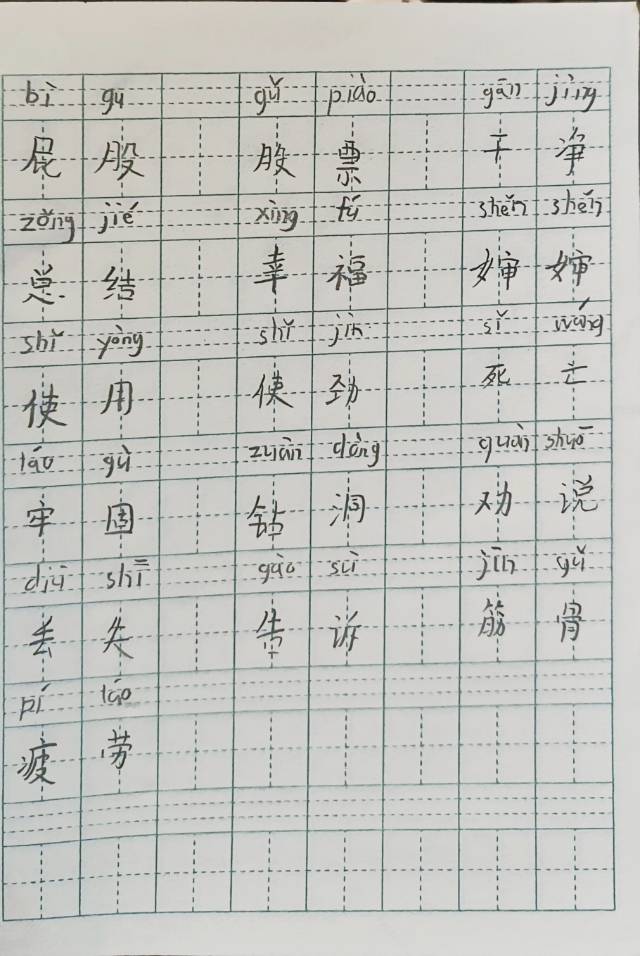 bì gu gǔ piào gān jìng
屁股 股票 干净
zǒng jié xìng fú shěn shěn
总结 幸福 婶婶
shǐ yòng shǐ jìn sǐ wáng
使用 使劲 死亡
láo gù zuàn dòng quàn shuō
牢固 钻洞 劝说
diū shī gào sù jīn gǔ
丢失 告诉 筋骨
pí láo
疲劳